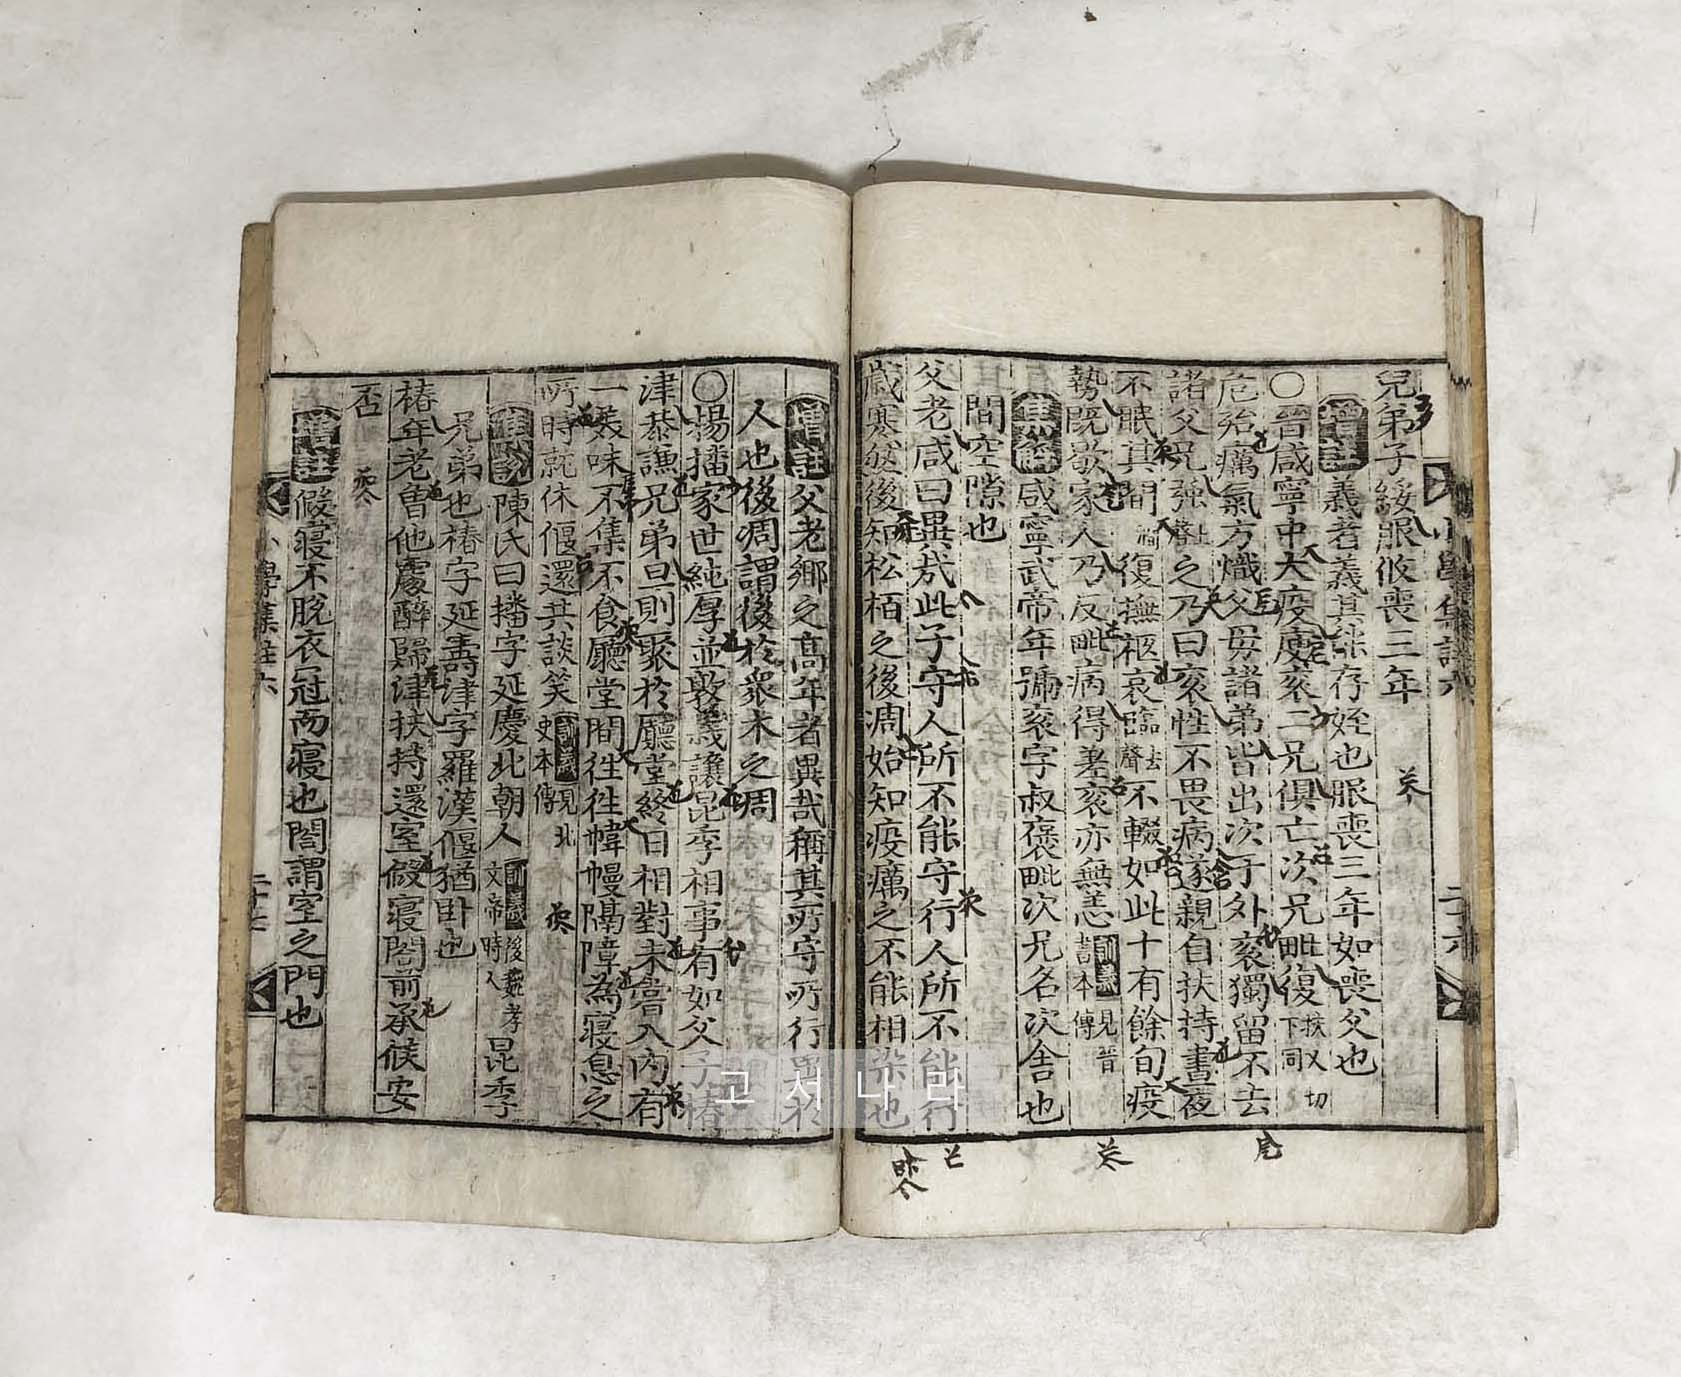 兒弟子綏服攸喪三年
增註義者義其能存姪也服喪三年如喪父也
○晉咸寧中大疫庾袞二兄俱亡次兄毗復扶又切下同
危殆癘氣方熾父母諸弟皆出次于外袞獨留不去
諸父兄强上聲之乃曰袞性不畏病遂親自扶持晝夜
不眠其間復撫柩哀臨去聲不輟如此十有餘旬疫
勢旣歇家人乃反毗病得差袞亦無恙見晉書本傳
集解咸寧武帝年號袞字叔褒毗次兄名次舍也
間空隙也
父老咸曰異哉此子守人所不能守行人所不能行
歲寒然後知松栢之後凋始知疫癘之不能相染也
小學集註六
二十六
增註父老鄕之高年者異哉稱其所守所行異於
人也後凋謂後於衆木之凋
○楊播家世純厚並敦義讓昆季相事有如父子椿
津恭謙兄弟旦則聚於廳堂終日相對未嘗入內有
一美味不集不食廳堂間徃徃幃幔隔障為寢息之
所時就休偃還共談笑見北史本傳
集說陳氏曰播字延慶北朝人後魏孝文帝時人昆季
兄弟也椿字延壽津字羅漢偃猶卧也
椿年老曾他處醉歸津扶持還室假寢閤前承候安
否
增註假寢不脫衣冠而寢也閤謂室之門也
小學集註六
二十七
고서나라